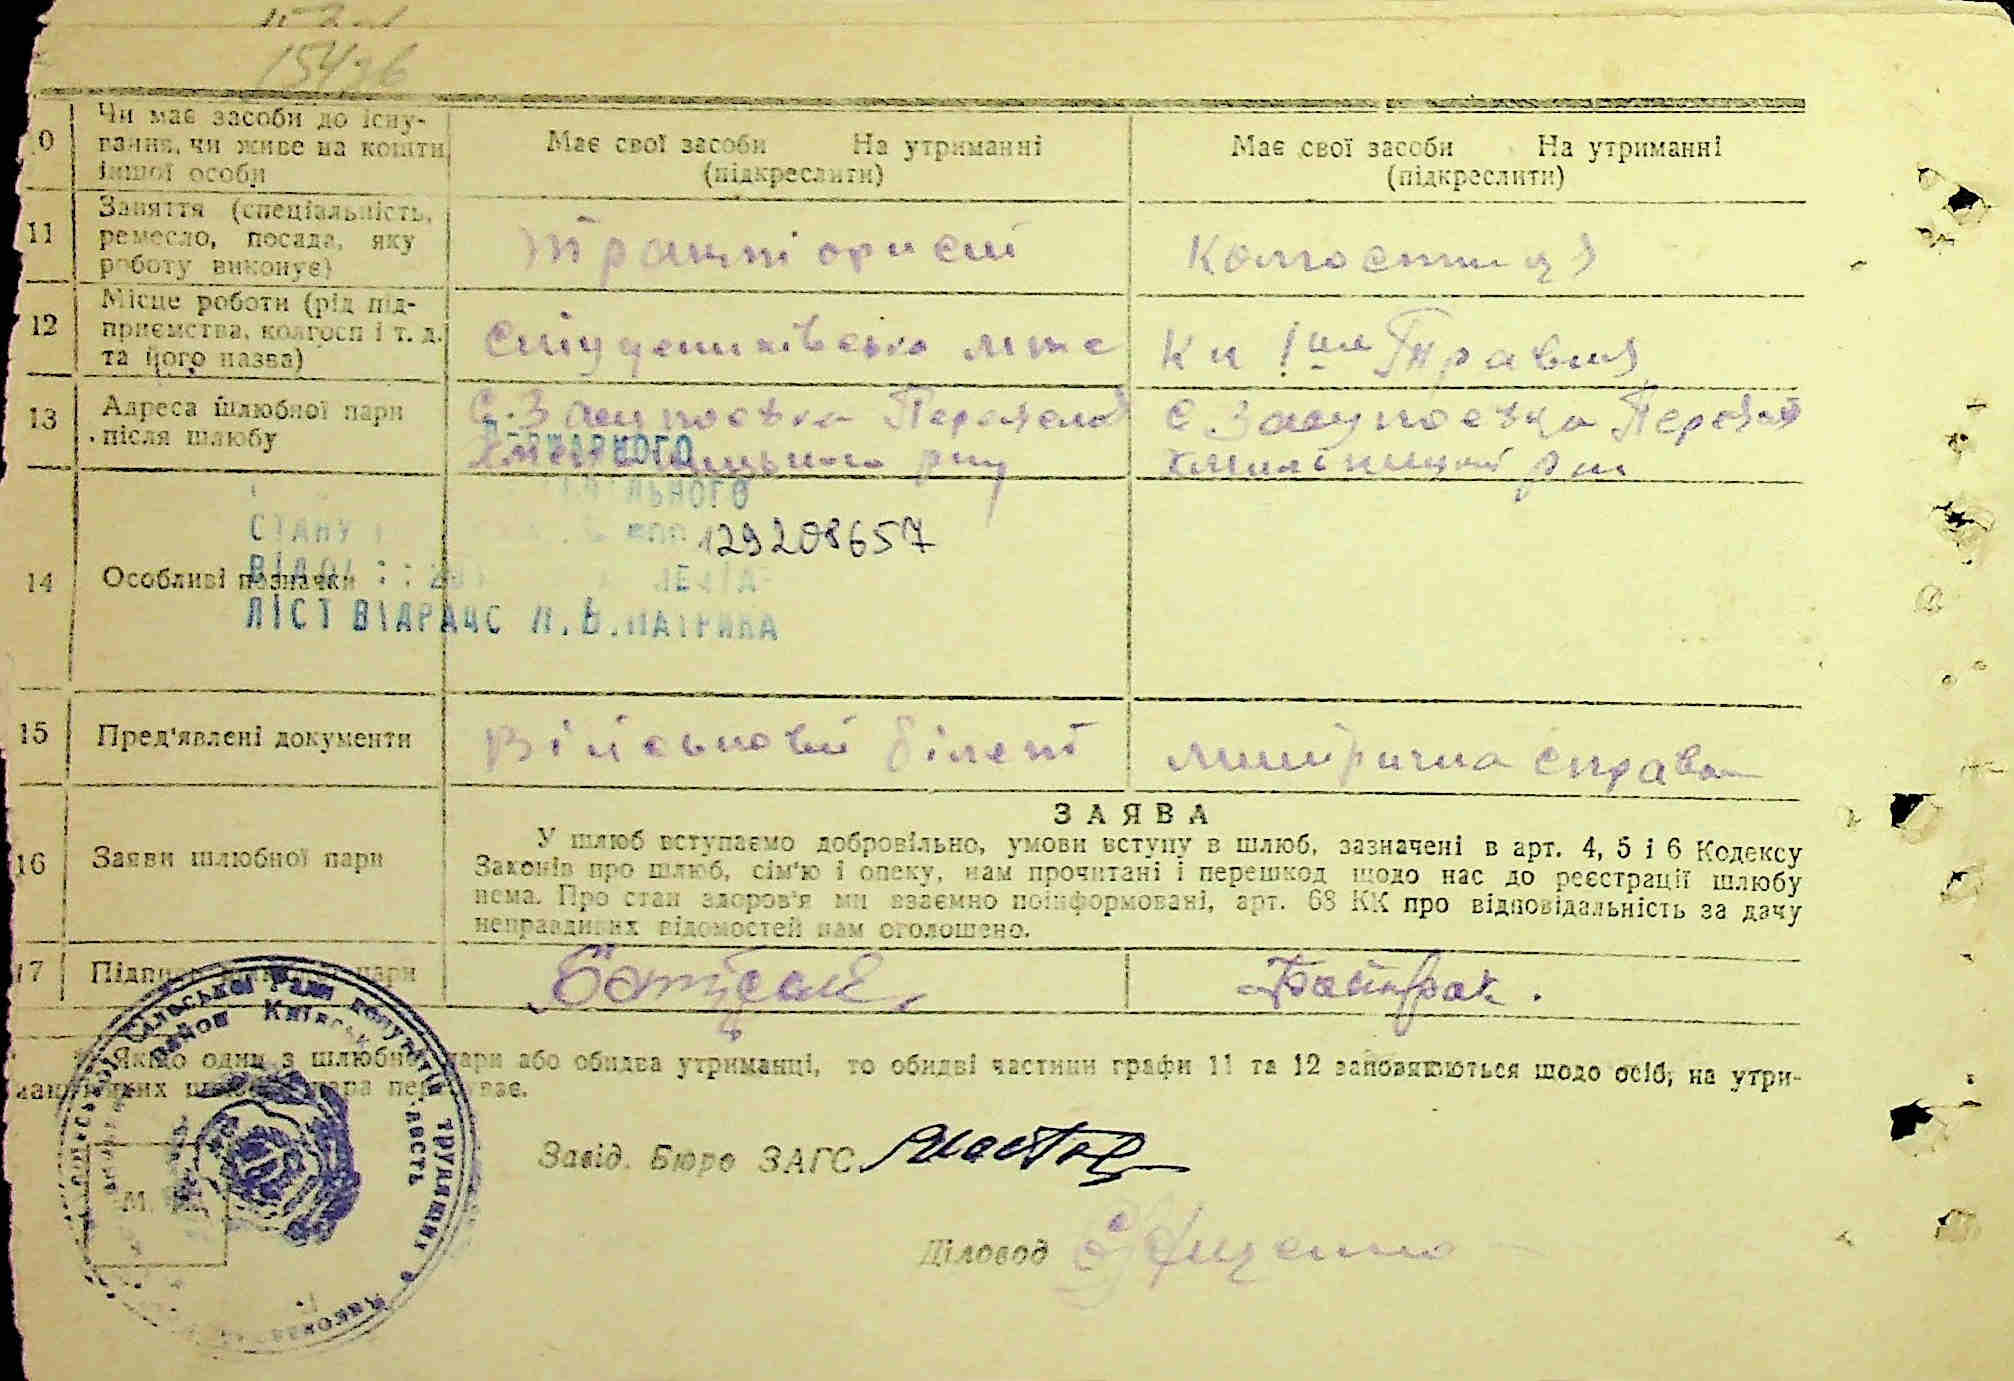 154
Чи має засоби до існу-
вання, чи живе на кошти
іншої особи
Має свої засоби На утриманні
(підкреслити)
Має свої засоби На утриманні
(підкреслити)
11
Заняття (спеціальність,
ремесло, посада, яку
роботу виконує)
Тракторист
Колгоспниця
12
Місце роботи (рід під-
приємства, колгосп і т. д.
та його назва)
мтс
1ше Травня
13
Адреса шлюбної пари
після шлюбу
С. Засупоєвка
Хмельницького р-ну
С Засупоєвка
14
Особливі позначки
СТАНУ
129208657
ЛІСТ ВІДРАЦС
15
Пред'явлені документи
Військовий білет
метрична справка
16
Заяви шлюбної пари
ЗАЯВА
У шлюб вступаємо добровільно, умови вступу в шлюб, зазначені в арт. 4, 5 і 6 Кодексу
Законів про шлюб, сім'ю і опеку, нам прочитані і перешкод щодо нас до реєстрації шлюбу
нема. Про стан здоров'я ми взаємно поінформовані, арт. 68 КК про відповідальність за дачу
неправдивих відомостей нам оголошено.
17
пари
Байбрак.
Якщо один з шлюбної пари або обидва утриманці, то обидві частини графи 11 та 12 заповнюються щодо осіб, на утри-
пара перебуває.
Сільської Ради депутатів трудящих
район Київськ
М.
Завід. Бюро ЗАГС
Діловод